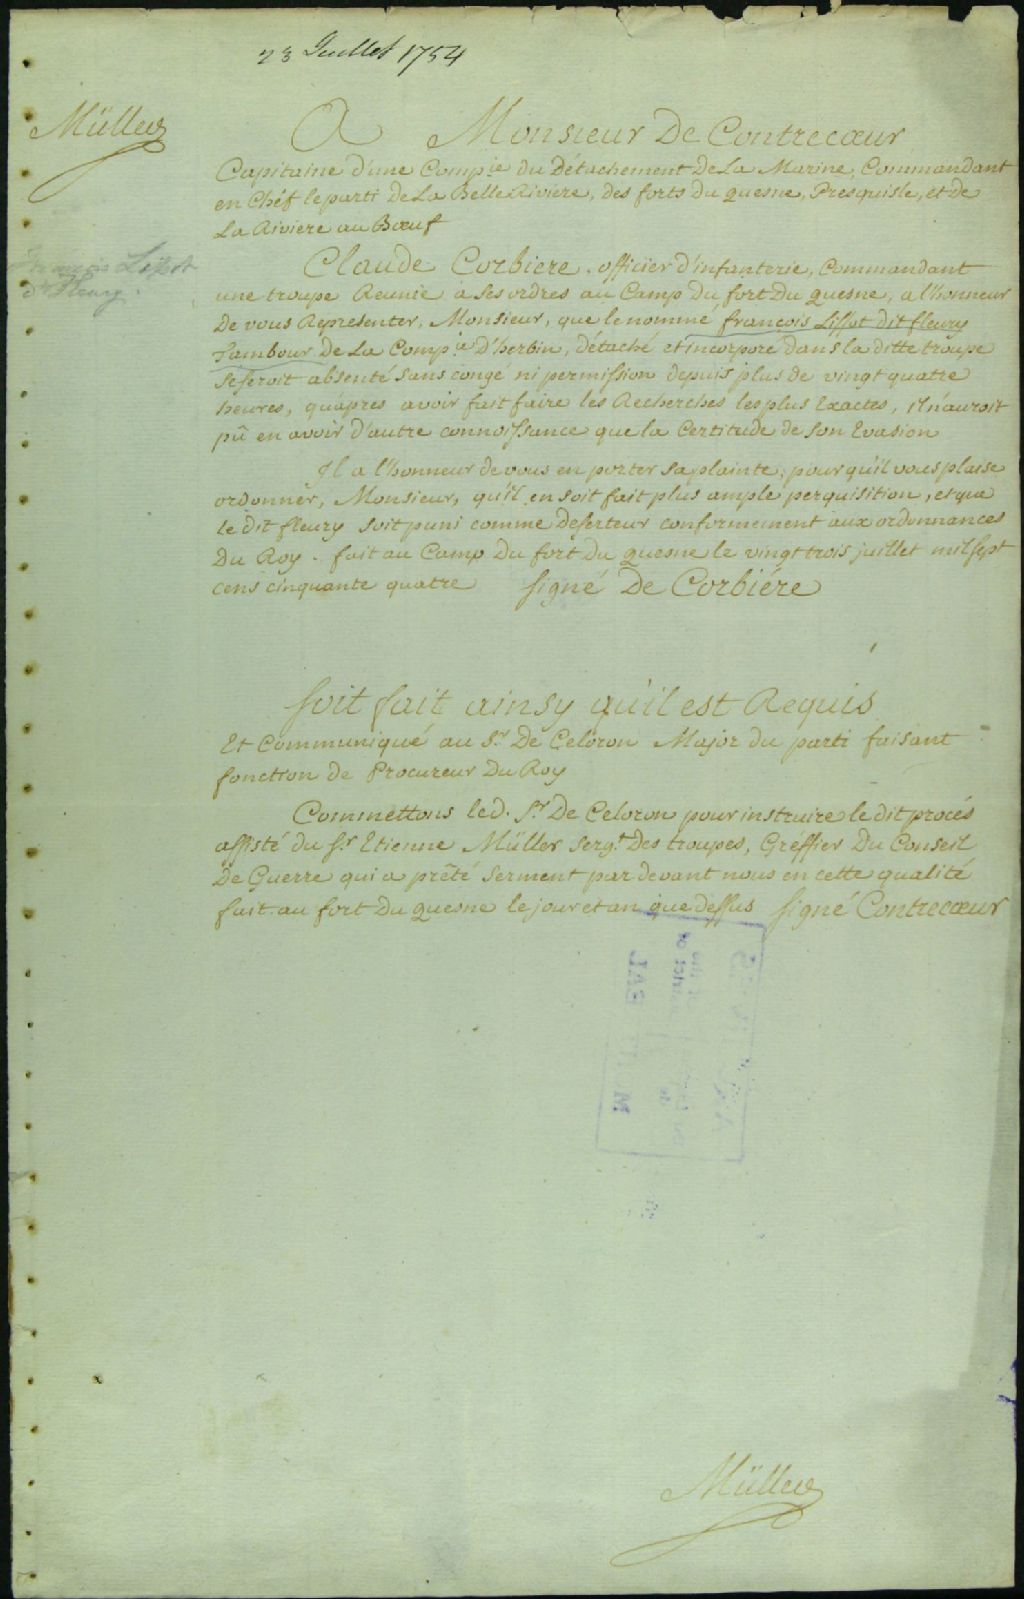 23 Juillet 1754
Müller
A Monsieur De Contrecœur
Capitaine d'une Comp.ie du Détachement De La Marine, Commandant
en Chéf le parti de La Belle Riviere, des forts du quesne, Presquisle, et de
La Riviere au Bœuf
François Liffot
dt fleury.
Claude Corbiere, officier d'infanterie, Commandant
une troupe Reunie a ses ordres au Camp Du fort Du quesne, a l'honneur
De vous Representer, Monsieur, que le nommé françois Liffot dit fleury
Tambour de La Comp.ie D'herbin, détaché et incorporé dans la ditte troupe
séseroit absenté sans congé ni permission depuis plus de vingt quatre
heures, qu'apres avoir fait faire les Recherches les plus Exactes, il n'auroit
pû en avoir d'autre connoissance que la Certitude de son Evasion
Il a l'honneur de vous en porter sa plainte, pour qu'il vous plaise
ordonner, Monsieur, qu'il en soit fait plus ample perquisition, et que
le dit fleury soit puni comme deserteur conformement aux ordonnances
Du Roy. fait au Camp Du fort Du quesne le vingt trois juillet mil sept
cens cinquante quatre signé De Corbiére
soit fait ainsy qu'il est Requis
Et Communiqué au Sr. De Celoron Major du parti faisant
fonction de Procureur Du Roy
Commettons led. Sr. De Celoron pour instruire le dit procés
assisté du Sr. Etienne Müller Sergt. Des troupes, Gréffier Du Conseil
De Guerre qui a prêté Serment par devant nous en cette qualité
fait au fort Du quesne le jour et an que dessus signé Contrecœur
Müller